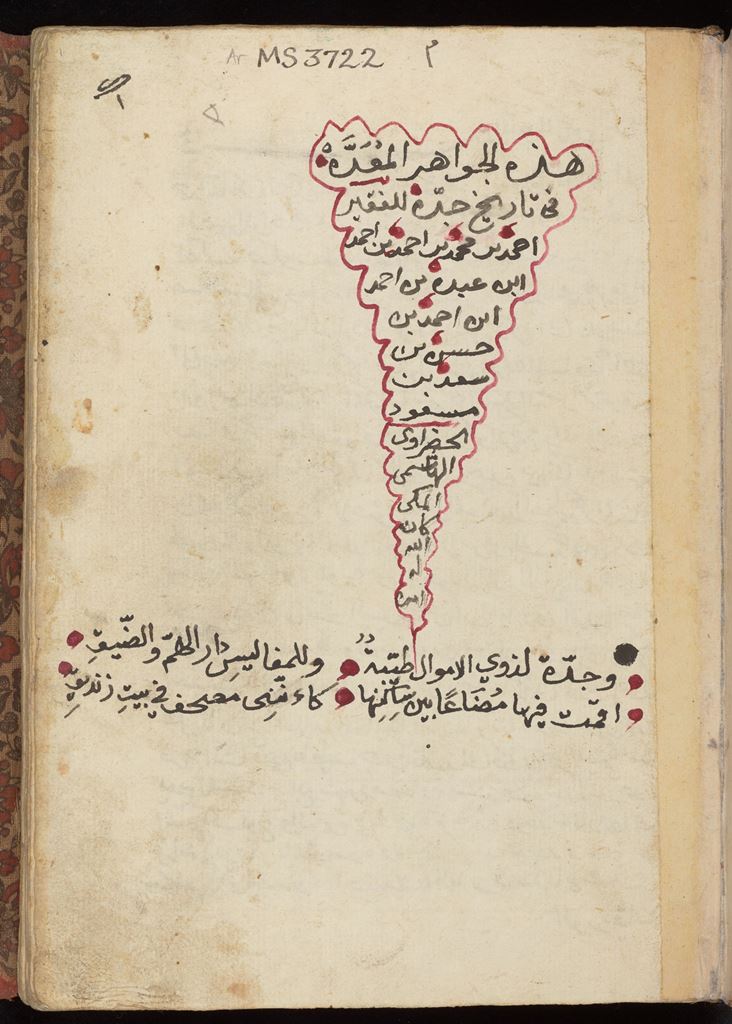 Ar MS 3722
هذه الجواهر المُعَدَّه
فى تاريخ جدّة للفقير
احمد بن محمد بن احمد بن احمد
ابن عبده بن احمد
ابن احمد بن
حسن بن
سعد بن
مسعود
الحضراوى
الهاشمى
المكى
كان
الله
له
امين
وجدّة لذوي الاموال طيّبة وللمفاليسِ دار الهمّ والضّيقِ
اقمت فيها مُضَاعًا بين ساكنها كاءنّنِى مصحف في بيتِ زنديقِ